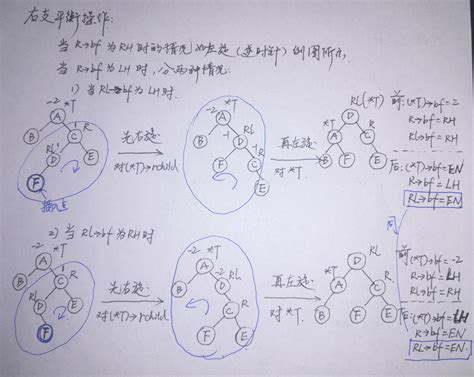 右支平衡操作:
当 R→bf 为 RH 时的情况如左旋(逆时针)例图所示,
当 R→bf 为 LH 时, 分两种情况:
1) 当 RL→bf 为 LH 时.
-2 *T
A
B
R
C
RL
D
E
F
插入点
先右旋
对(*T)→rchild
-2 *T
A
B
RL
D
R
C
F
E
再左旋
对 *T.
RL(*T)
D
*T
A
R
C
B
F
E
前:(*T)→bf=-2
R→bf=RH
RL→bf=RH
后:(*T)→bf=EN
R→bf=LH
RL→bf=EN
同
2) 当 RL→bf 为 RH 时
-2 *T
A
B
R
C
RL
D
E
F
先右旋
对(*T)→rchild
-2 *T
A
B
-2 RL
D
R
C
F
E
再左旋
对 *T.
RL
D
*T
A
R
C
B
F
E
前:(*T)→bf=-2
R→bf=LH
RL→bf=RH
后:(*T)→bf=LH
R→bf=EN
RL→bf=EN.